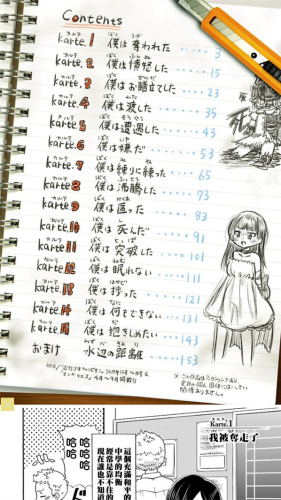 Contents
karte.1 僕は奪われた ····· 3
karte.2 僕は憤怒した ····· 15
karte.3 僕はお膳立てした ····· 25
karte.4 僕は渡した ····· 35
karte.5 僕は遭遇した ····· 43
karte.6 僕は嫌だ ····· 53
karte.7 僕は練りに練った ····· 65
karte.8 僕は沸騰した ····· 73
karte.9 僕は匿った ····· 83
karte.10 僕は死んだ ····· 91
karte.11 僕は突破した ····· 101
karte.12 僕は眠れない ····· 111
karte.13 僕は捗った ····· 121
karte.14 僕は何もできない ····· 131
karte.15 僕は抱きしめたい ····· 143
おまけ 水辺の距離 ····· 153
Karte.1
我被奪走了
這個充滿和平的
中學的均衡
經常是靠不住的
現在誰也不知道
哈哈
哈哈